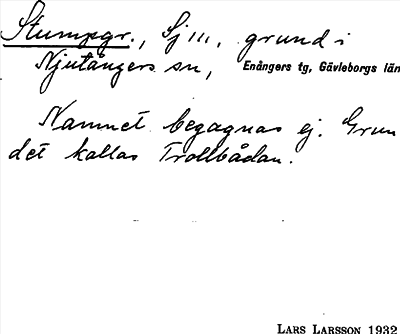 Stumpgr., Sj III, grund i
Njutångers sn, Enångers tg, Gävleborgs län
Namnet begagnas ej. Grun
det kallas Trollbådan.
LARS LARSSON 1932